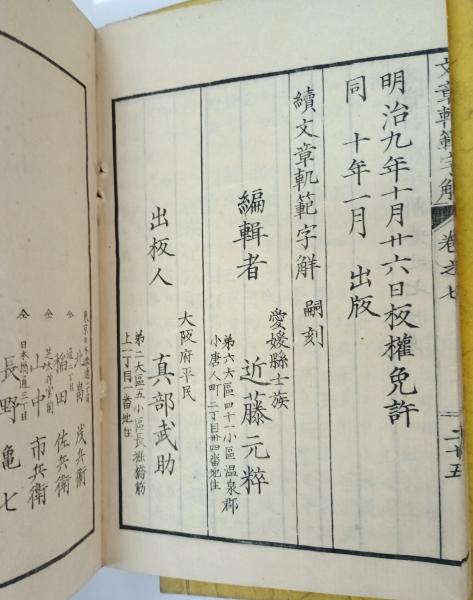 文章軌範字解 卷之七 二十五
明治九年十月廿六日板權免許
同 十年一月 出版
續文章軌範字解 嗣刻
愛媛縣士族
編輯者 近藤元粹
第六大區四十一小區温泉郡
小唐人町二丁目卅四番地住
大阪府平民
出板人 真部武助
第二大區五小區長堀
上一丁目 番地住
稲田 佐兵衛
仝 芝
山中 市兵衛
仝 日本橋通三丁目
長野 亀七